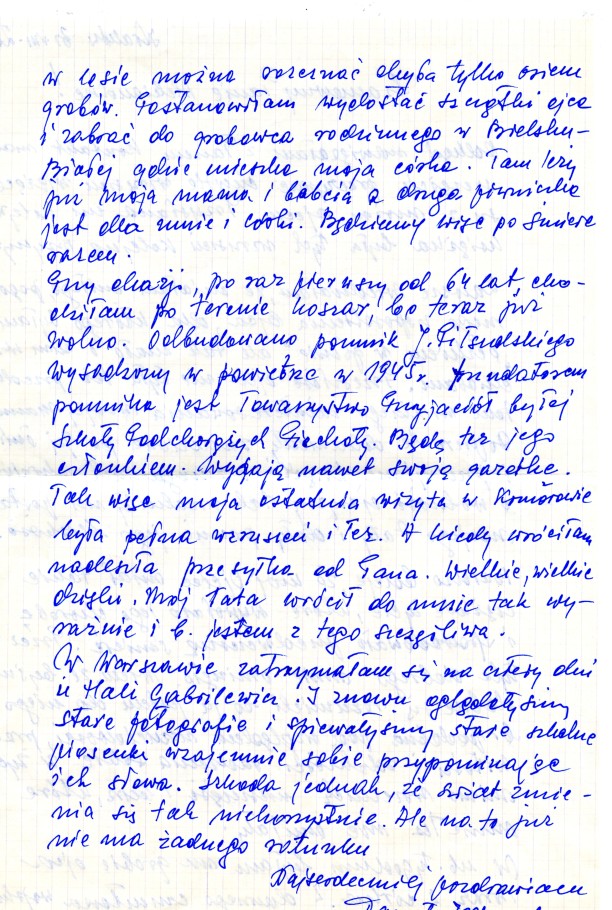 w lesie można rozeznać chyba tylko osiem
grobów. Postanowiłam wydostać szczątki ojca
i zabrać do grobowca rodzinnego w Bielsku-
Białej gdzie mieszka moja córka. Tam leży
już moja mama i babcia a druga piwniczka
jest dla mnie i córki. Będziemy więc po śmierci
razem.
Przy okazji, po raz pierwszy od 64 lat, cho-
dziłam po terenie koszar, bo teraz już
wolno. Odbudowano pomnik J. Piłsudskiego
wysadzony w powietrze w 1945 r. Fundatorem
pomnika jest Towarzystwo Przyjaciół byłej
Szkoły Podchorążych Piechoty. Będę też jego
członkiem. Wydają nawet swoją gazetkę.
Tak więc moja ostatnia wizyta w Komorowie
była pełna wzruszeń i łez. A kiedy wróciłam
nadeszła przesyłka od Pana. Wielkie, wielkie
dzięki. Mój Tata wrócił do mnie tak wy-
raźnie i b. jestem z tego szczęśliwa.
W Warszawie zatrzymałam się na cztery dni
u Hali Gabrilewicz. I znowu oglądałyśmy
stare fotografie i śpiewałyśmy stare szkolne
piosenki wzajemnie sobie przypominając
ich słowa. Szkoda jednak, że świat zmie-
nia się tak niekorzystnie. Ale na to już
nie ma żadnego ratunku
Najserdeczniej pozdrawiam